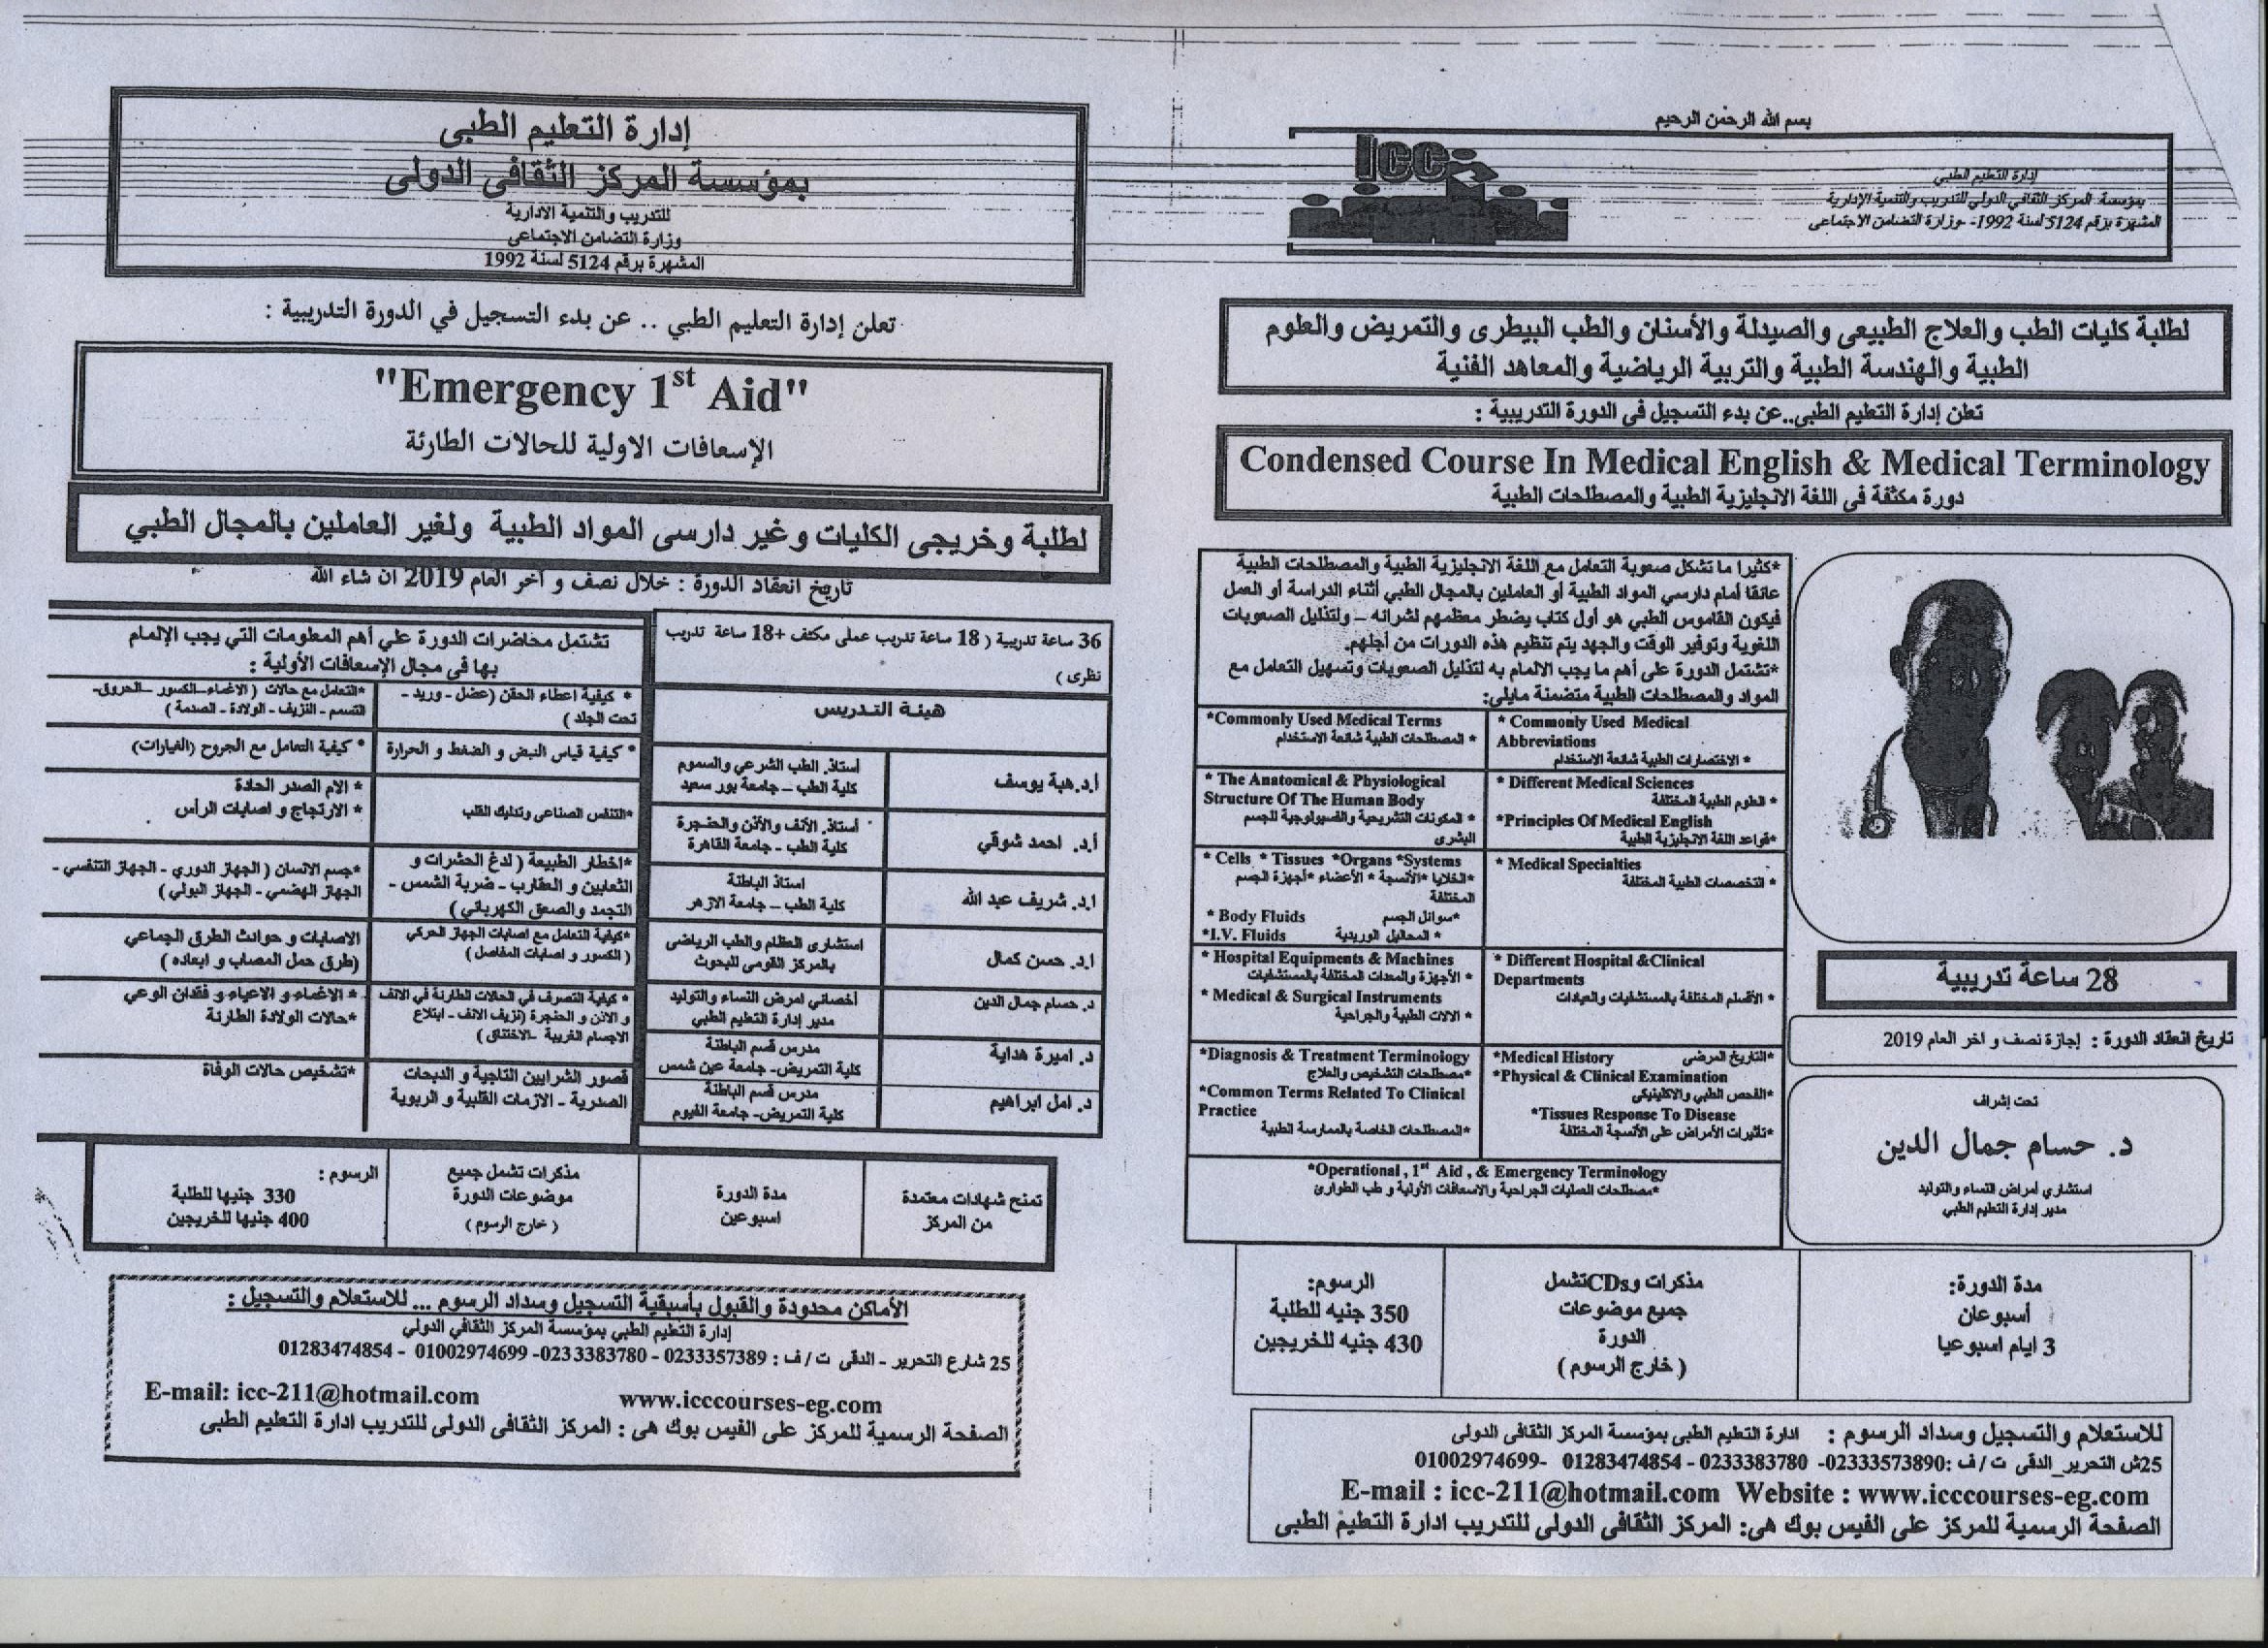 بسم الله الرحمن الرحيم
Icc
إدارة التعليم الطبي
بمؤسسة المركز الثقافي الدولي للتدريب والتنمية الإدارية
المشهرة برقم 5124 لسنة 1992- وزارة التضامن الاجتماعى
لطلبة كليات الطب والعلاج الطبيعى والصيدلة والأسنان والطب البيطرى والتمريض والعلوم
الطبية والهندسة الطبية والتربية الرياضية والمعاهد الفنية
تعلن إدارة التعليم الطبى..عن بدء التسجيل فى الدورة التدريبية :
Condensed Course In Medical English & Medical Terminology
دورة مكثفة فى اللغة الانجليزية الطبية والمصطلحات الطبية
*كثيرا ما تشكل صعوبة التعامل مع اللغة الانجليزية الطبية والمصطلحات الطبية
عائقا أمام دارسي المواد الطبية أو العاملين بالمجال الطبي أثناء الدراسة أو العمل
فيكون القاموس الطبي هو أول كتاب يضطر معظمهم لشرائه – ولتذليل الصعوبات
اللغوية وتوفير الوقت والجهد يتم تنظيم هذه الدورات من أجلهم.
*تشتمل الدورة على أهم ما يجب الالمام به لتذليل الصعوبات وتسهيل التعامل مع
المواد والمصطلحات الطبية متضمنة مايلى:
*Commonly Used Medical Terms
* المصطلحات الطبية شائعة الاستخدام
* Commonly Used Medical
Abbreviations
* الاختصارات الطبية شائعة الاستخدام
* The Anatomical & Physiological
Structure Of The Human Body
* المكونات التشريحية والفسيولوجية للجسم
البشرى
* Different Medical Sciences
* العلوم الطبية المختلفة
*Principles Of Medical English
*قواعد اللغة الانجليزية الطبية
* Cells * Tissues *Organs *Systems
*الخلايا *الأنسجة * الأعضاء *أجهزة الجسم
المختلفة
* Body Fluids *سوائل الجسم
*I.V. Fluids * المحاليل الوريدية
* Medical Specialties
* التخصصات الطبية المختلفة
* Hospital Equipments & Machines
* الأجهزة والمعدات المختلفة بالمستشفيات
* Medical & Surgical Instruments
* الالات الطبية والجراحية
* Different Hospital &Clinical
Departments
* الأقسام المختلفة بالمستشفيات والعيادات
*Diagnosis & Treatment Terminology
*مصطلحات التشخيص والعلاج
*Common Terms Related To Clinical
Practice
*المصطلحات الخاصة بالممارسة الطبية
*Medical History *التاريخ المرضى
*Physical & Clinical Examination
*الفحص الطبي والاكلينيكى
*Tissues Response To Disease
*تأثيرات الأمراض على الأنسجة المختلفة
*Operational , 1st Aid , & Emergency Terminology
*مصطلحات العمليات الجراحية والاسعافات الأولية و طب الطوارئ
28 ساعة تدريبية
تاريخ انعقاد الدورة : إجازة نصف و اخر العام 2019
تحت إشراف
د. حسام جمال الدين
استشاري أمراض النساء والتوليد
مدير إدارة التعليم الطبي
مدة الدورة:
أسبوعان
3 ايام اسبوعيا
مذكرات وCDsتشمل
جميع موضوعات
الدورة
( خارج الرسوم )
الرسوم:
350 جنيه للطلبة
430 جنيه للخريجين
للاستعلام والتسجيل وسداد الرسوم : ادارة التعليم الطبى بمؤسسة المركز الثقافى الدولى
25ش التحرير_الدقى ت/ ف :02333573890- 0233383780 - 01283474854 -01002974699
E-mail : icc-211@hotmail.com Website : www.icccourses-eg.com
الصفحة الرسمية للمركز على الفيس بوك هى: المركز الثقافى الدولى للتدريب ادارة التعليم الطبى
إدارة التعليم الطبى
بمؤسسة المركز الثقافى الدولى
للتدريب والتنمية الادارية
وزارة التضامن الاجتماعى
المشهرة برقم 5124 لسنة 1992
تعلن إدارة التعليم الطبي .. عن بدء التسجيل في الدورة التدريبية :
"Emergency 1st Aid"
الإسعافات الاولية للحالات الطارئة
لطلبة وخريجى الكليات وغير دارسى المواد الطبية ولغير العاملين بالمجال الطبي
تاريخ انعقاد الدورة : خلال نصف و اخر العام 2019 ان شاء الله
36 ساعة تدريبية ( 18 ساعة تدريب عملى مكثف +18 ساعة تدريب
نظرى )
هيئة التدريس
أ.د.هبة يوسف
أستاذ. الطب الشرعي والسموم
كلية الطب – جامعة بور سعيد
أ.د. احمد شوقي
أستاذ. الأنف والأذن والحنجرة
كلية الطب - جامعة القاهرة
ا.د. شريف عبد الله
استاذ الباطنة
كلية الطب – جامعة الازهر
ا.د. حسن كمال
استشارى العظام والطب الرياضى
بالمركز القومى للبحوث
د. حسام جمال الدين
أخصائي امرض النساء والتوليد
مدير إدارة التعليم الطبي
د. اميرة هداية
مدرس قسم الباطنة
كلية التمريض- جامعة عين شمس
د. امل ابراهيم
مدرس قسم الباطنة
كلية التمريض- جامعة الفيوم
تشتمل محاضرات الدورة علي أهم المعلومات التي يجب الإلمام
بها فى مجال الإسعافات الأولية :
* كيفية اعطاء الحقن (عضل - وريد -
تحت الجلد )
*التعامل مع حالات ( الاغماء–الكسور –الحروق-
التسمم - النزيف - الولادة - الصدمة )
* كيفية قياس النبض و الضغط و الحرارة
* كيفية التعامل مع الجروح (الغيارات)
*التنفس الصناعى وتدليك القلب
* الام الصدر الحادة
* الارتجاج و اصابات الرأس
*اخطار الطبيعة ( لدغ الحشرات و
الثعابين و العقارب - ضربة الشمس -
التجمد والصعق الكهربائي )
*جسم الانسان ( الجهاز الدوري - الجهاز التنفسي -
الجهاز الهضمي - الجهاز البولي )
*كيفية التعامل مع اصابات الجهاز الحركي
( الكسور و اصابات المفاصل )
الاصابات و حوادث الطرق الجماعي
(طرق حمل المصاب و ابعاده )
* كيفية التصرف في الحالات الطارئة في الانف
و الاذن و الحنجرة (نزيف الانف - ابتلاع
الاجسام الغريبة –الاختناق )
* الاغماء و الاعياء و فقدان الوعي
*حالات الولادة الطارئة
قصور الشرايين التاجية و الذبحات
الصدرية – الازمات القلبية و الربوية
*تشخيص حالات الوفاة
تمنح شهادات معتمدة
من المركز
مدة الدورة
اسبوعين
مذكرات تشمل جميع
موضوعات الدورة
( خارج الرسوم )
الرسوم :
330 جنيها للطلبة
400 جنيها للخريجين
الأماكن محدودة والقبول بأسبقية التسجيل وسداد الرسوم ... للاستعلام والتسجيل :
إدارة التعليم الطبي بمؤسسة المركز الثقافي الدولي
25 شارع التحرير - الدقى ت/ ف : 0233357389 - 0233383780- 01002974699 - 01283474854
E-mail: icc-211@hotmail.com www.icccourses-eg.com
الصفحة الرسمية للمركز على الفيس بوك هى : المركز الثقافى الدولى للتدريب ادارة التعليم الطبى